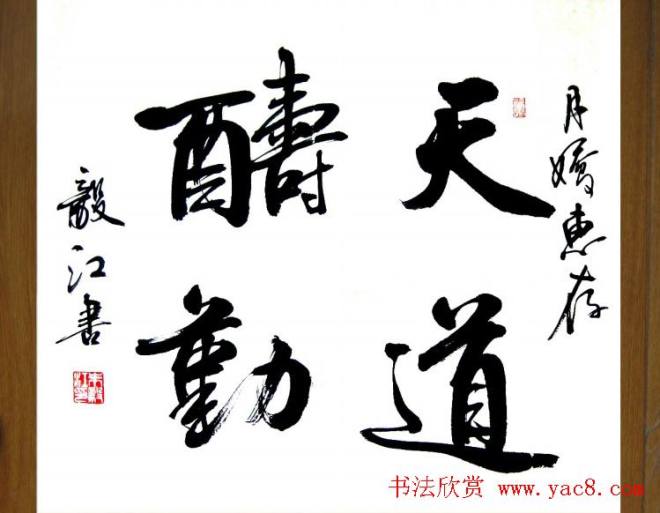 月娇惠存
天道
醻勤
毅江书
书法欣赏 www.yac8.com